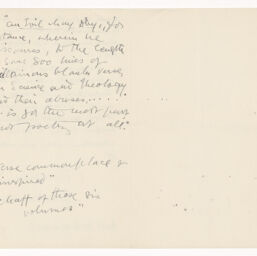 "An Evil May Day, for
stance, wherein he
discourses, to the length
some 800 lines of
blank verse,
science and theology
and their abuses.....
.. is for the most part
not poetry at all."
commonplace &
uninspired"
chaff of those six
volumes"